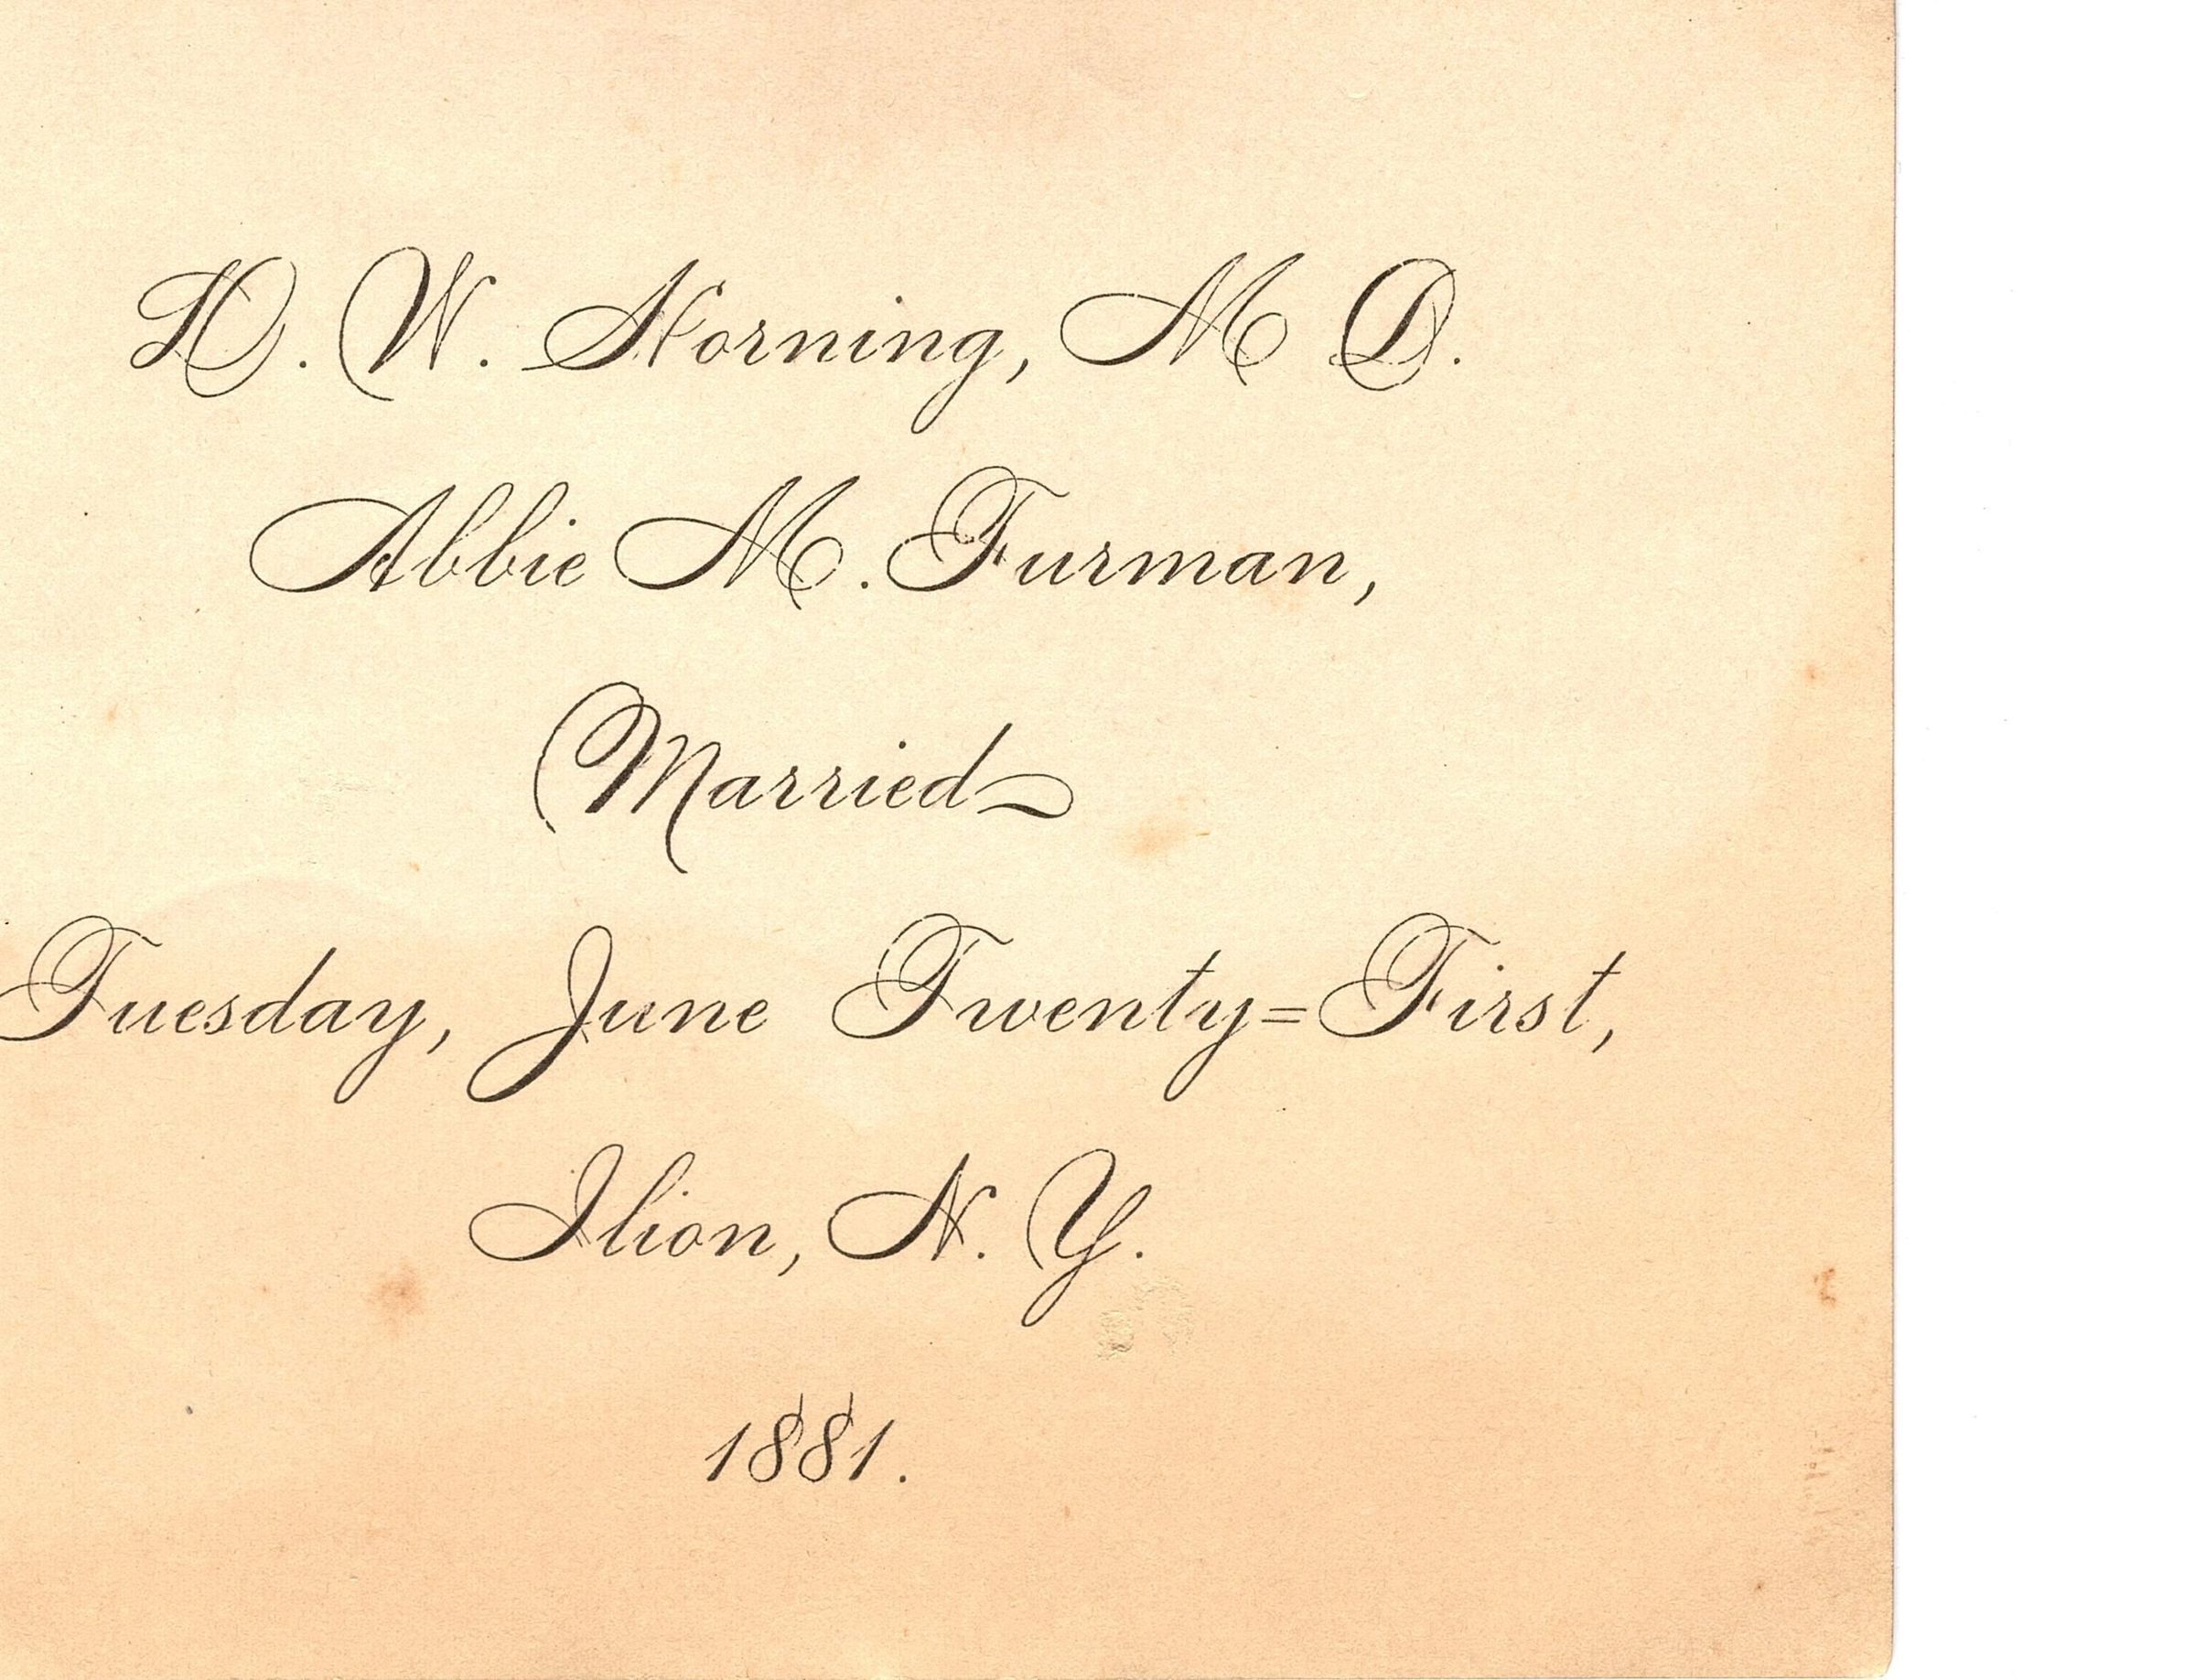 D. W. Horning, M D.
Abbie M. Furman,
Married
Tuesday, June Twenty=First,
Ilion, N. Y.
1881.